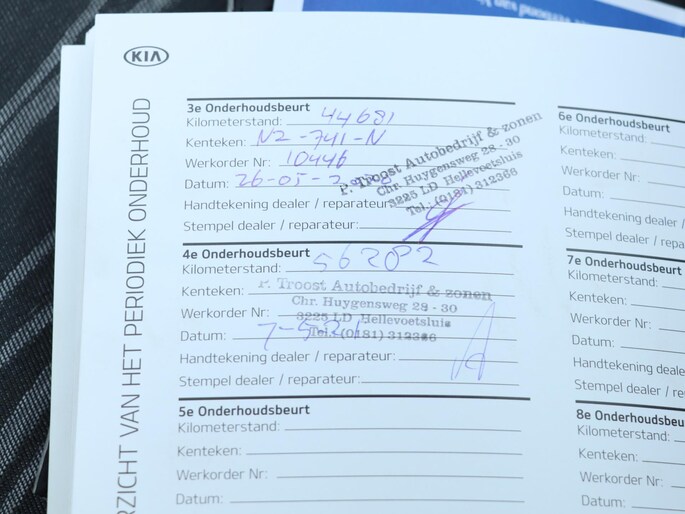 KIA
OVERZICHT VAN HET PERIODIEK ONDERHOUD
3e Onderhoudsbeurt
Kilometerstand: 44681
Kenteken: NZ-741-N
Werkorder Nr: 10446
Datum: 26-05-
Handtekening dealer / reparateur:
Stempel dealer / reparateur:
P. Troost Autobedrijf & zonen
Chr. Huygensweg 28 - 30
3225 LD Hellevoetsluis
Tel.: (0181) 312366
4e Onderhoudsbeurt
Kilometerstand: 56202
Kenteken:
Werkorder Nr:
Datum: 7-5-21
Handtekening dealer / reparateur:
Stempel dealer / reparateur:
P. Troost Autobedrijf & zonen
Chr. Huygensweg 28 - 30
3225 LD Hellevoetsluis
Tel.: (0181) 312366
5e Onderhoudsbeurt
Kilometerstand:
Kenteken:
Werkorder Nr:
Datum:
6e Onderhoudsbeurt
Kilometerstand:
Kenteken:
Werkorder Nr:
Datum:
Handtekening dealer /
Stempel dealer / repa
7e Onderhoudsbeurt
Kilometerstand:
Kenteken:
Werkorder Nr:
Datum:
Handtekening dealer
Stempel dealer / re
8e Onderhoudsbeu
Kilometerstand:
Kenteken:
Werkorder Nr:
Datum: